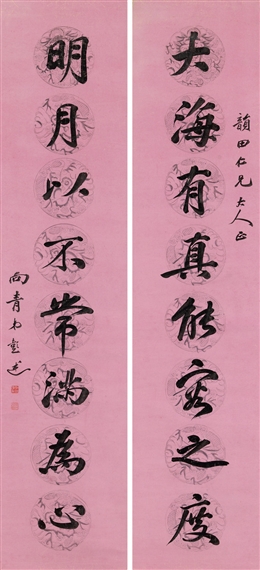 韻田仁兄大人正
大海有真能容之度
明月以不常滿為心
向青弟彭述